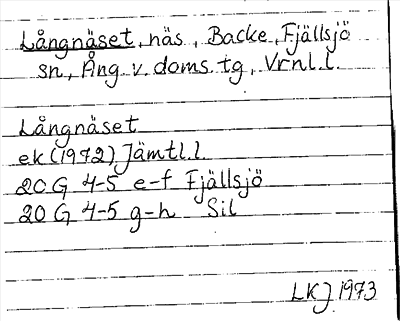 Långnäset, näs, Backe, Fjällsjö
sn, Ång. v. doms. tg, Vrnl. l.
Långnäset
ek (1972) Jämtl. l.
20 G 4-5 e-f Fjällsjö
20 G 4-5 g-h Sil
LKJ 1973